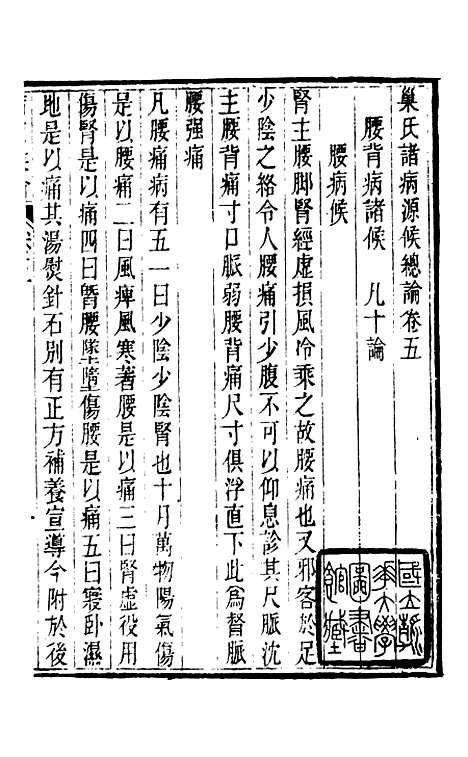 巢氏諸病源候總論卷五
腰背病諸候　凡十論
腰病候
腎主腰脚腎經虛損風冷乘之故腰痛也又邪客於足
少陰之絡令人腰痛引少腹不可以仰息診其尺脈沈
主腰背痛寸口脈弱腰背痛尺寸俱浮直下此爲督脈
腰强痛
凡腰痛病有五一曰少陰少陰腎也十月萬物陽氣傷
是以腰痛二曰風痺風寒著腰是以痛三曰腎虛役用
傷腎是以痛四曰䐴腰墜墮傷腰是以痛五曰寢卧濕
地是以痛其湯熨針石别有正方補養宣導今附於後
國立
大學
圖書
館藏